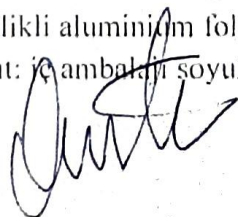 likli aluminium fol
nt: iç ambalajı soyu